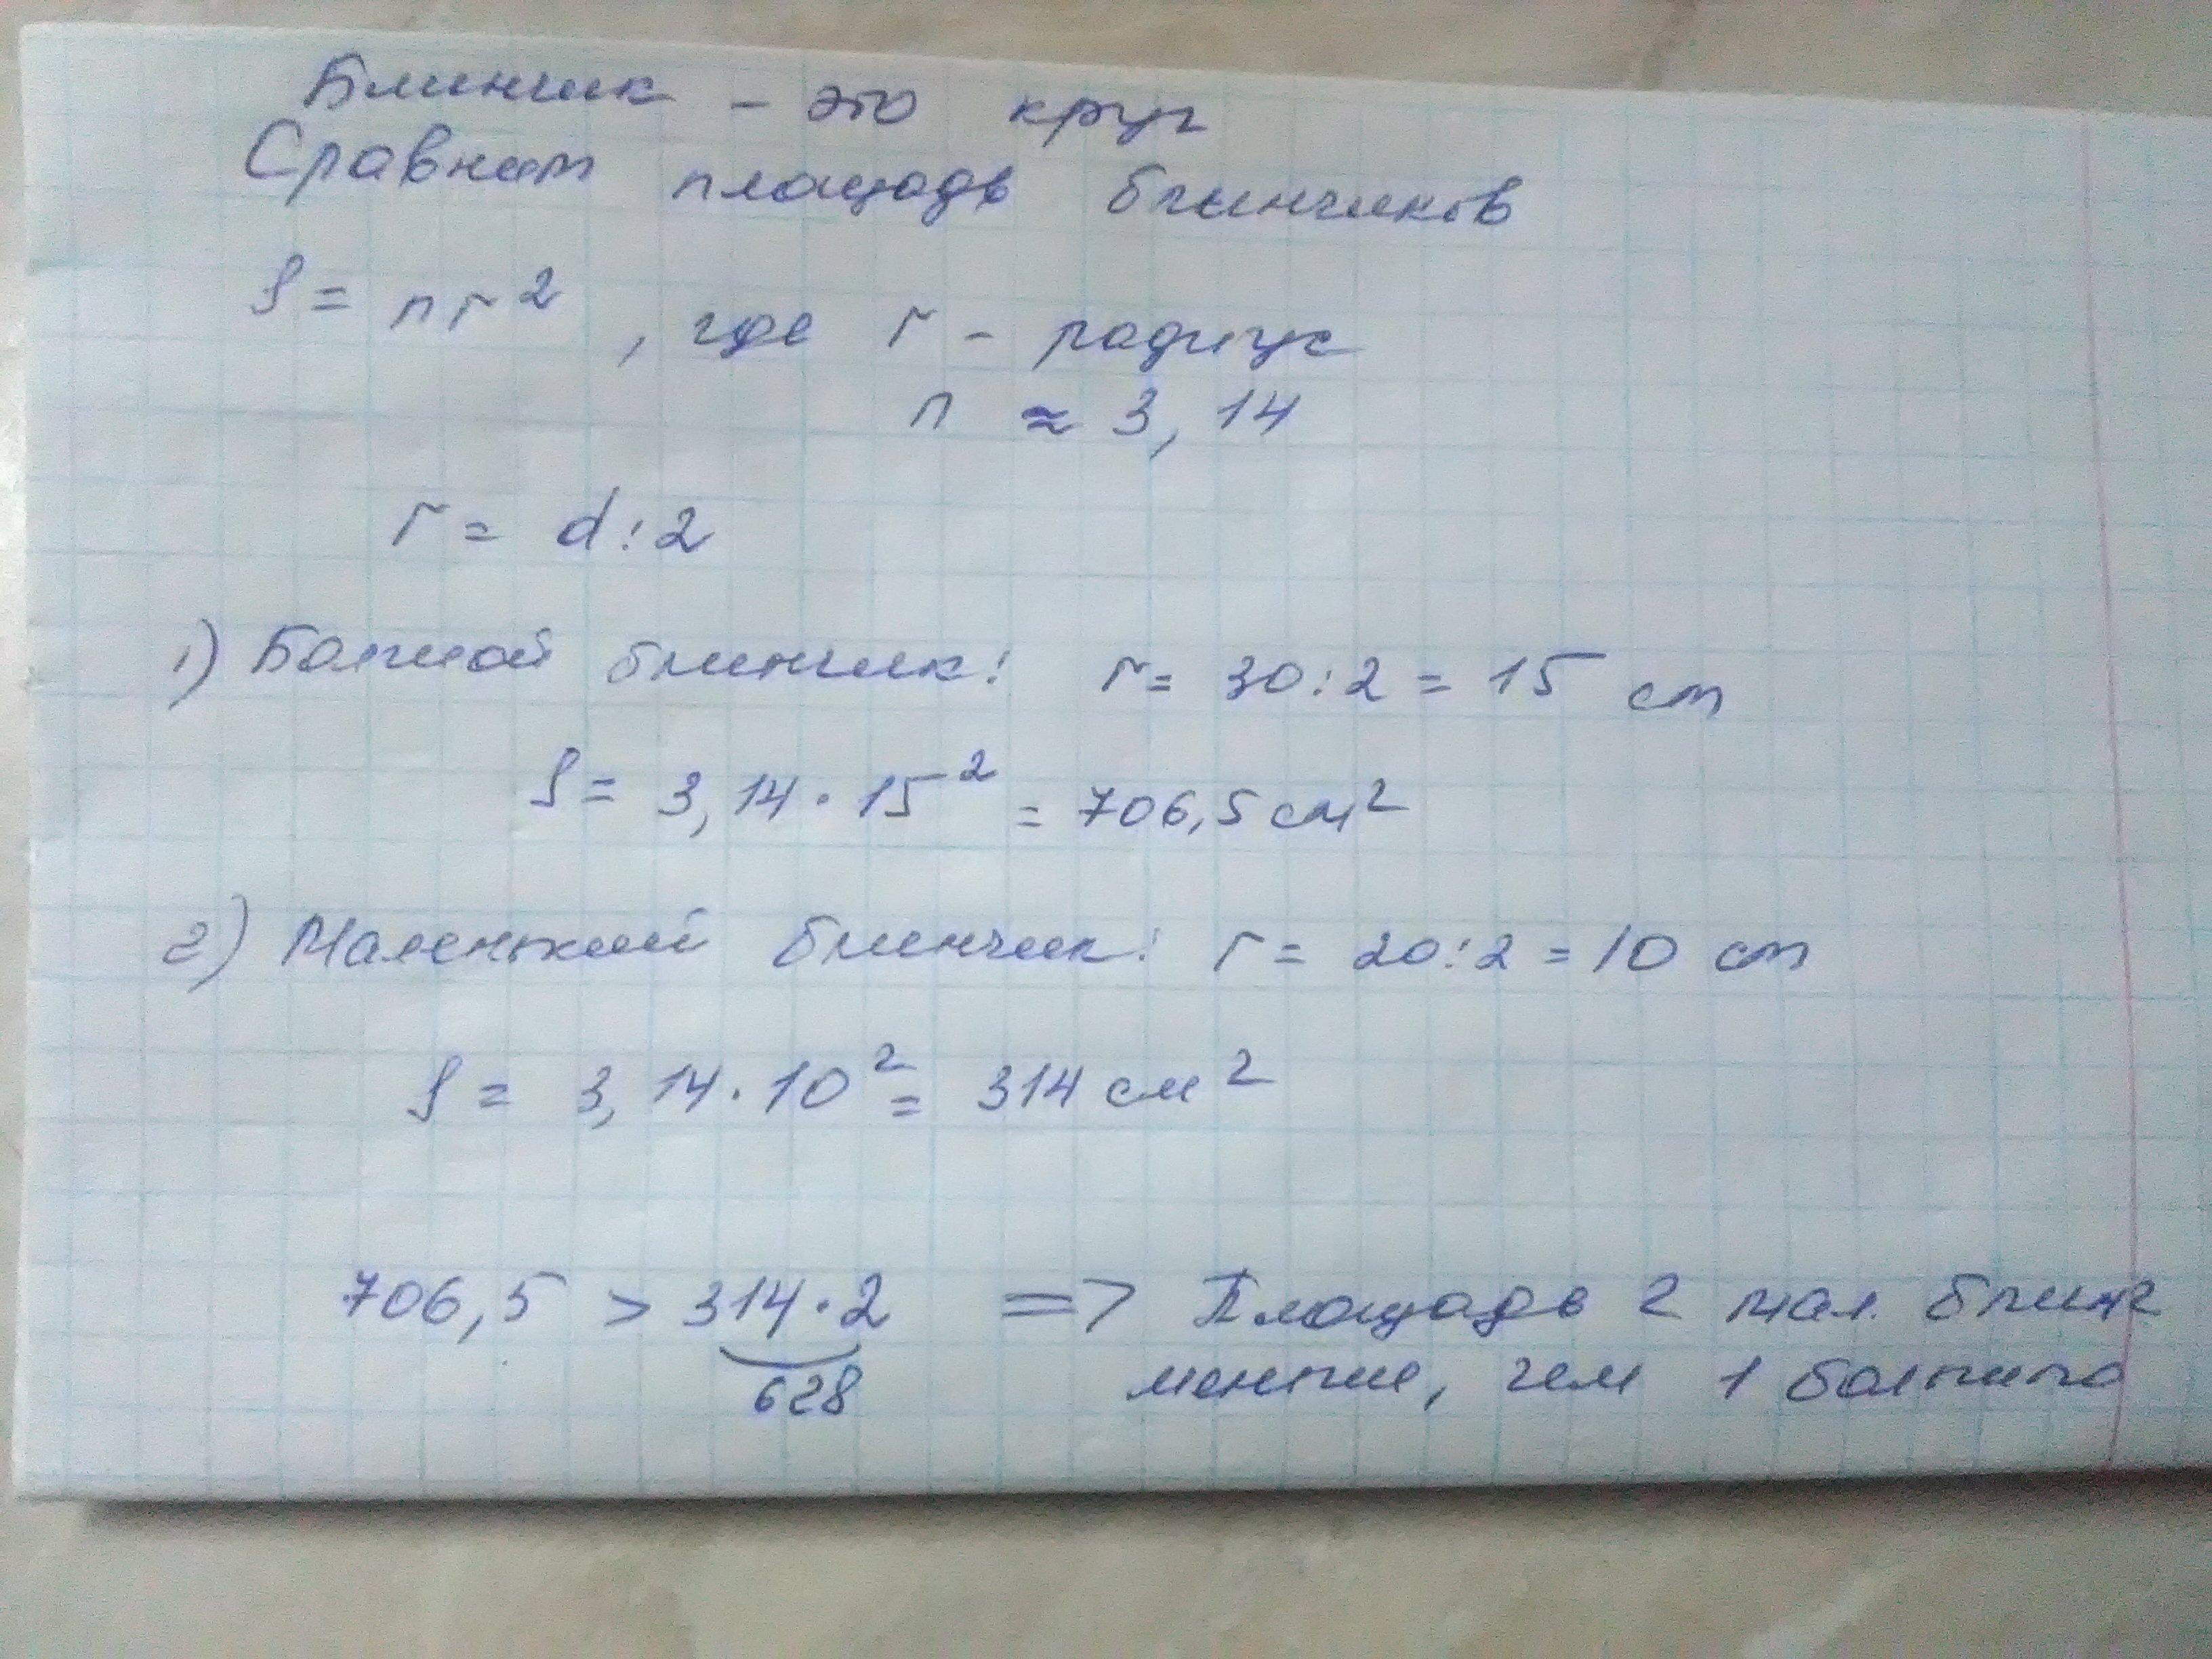 Блинчик - это круг
Сравним площадь блинчиков
S = πr², где r - радиус
π ≈ 3,14
r = d:2
1) Большой блинчик: r = 30:2 = 15 см
S = 3,14 · 15² = 706,5 см²
2) Маленький блинчик: r = 20:2 = 10 см
S = 3,14 · 10² = 314 см²
706,5 > 314 · 2 => Площадь 2 мал. блинч
628 меньше, чем 1 большого